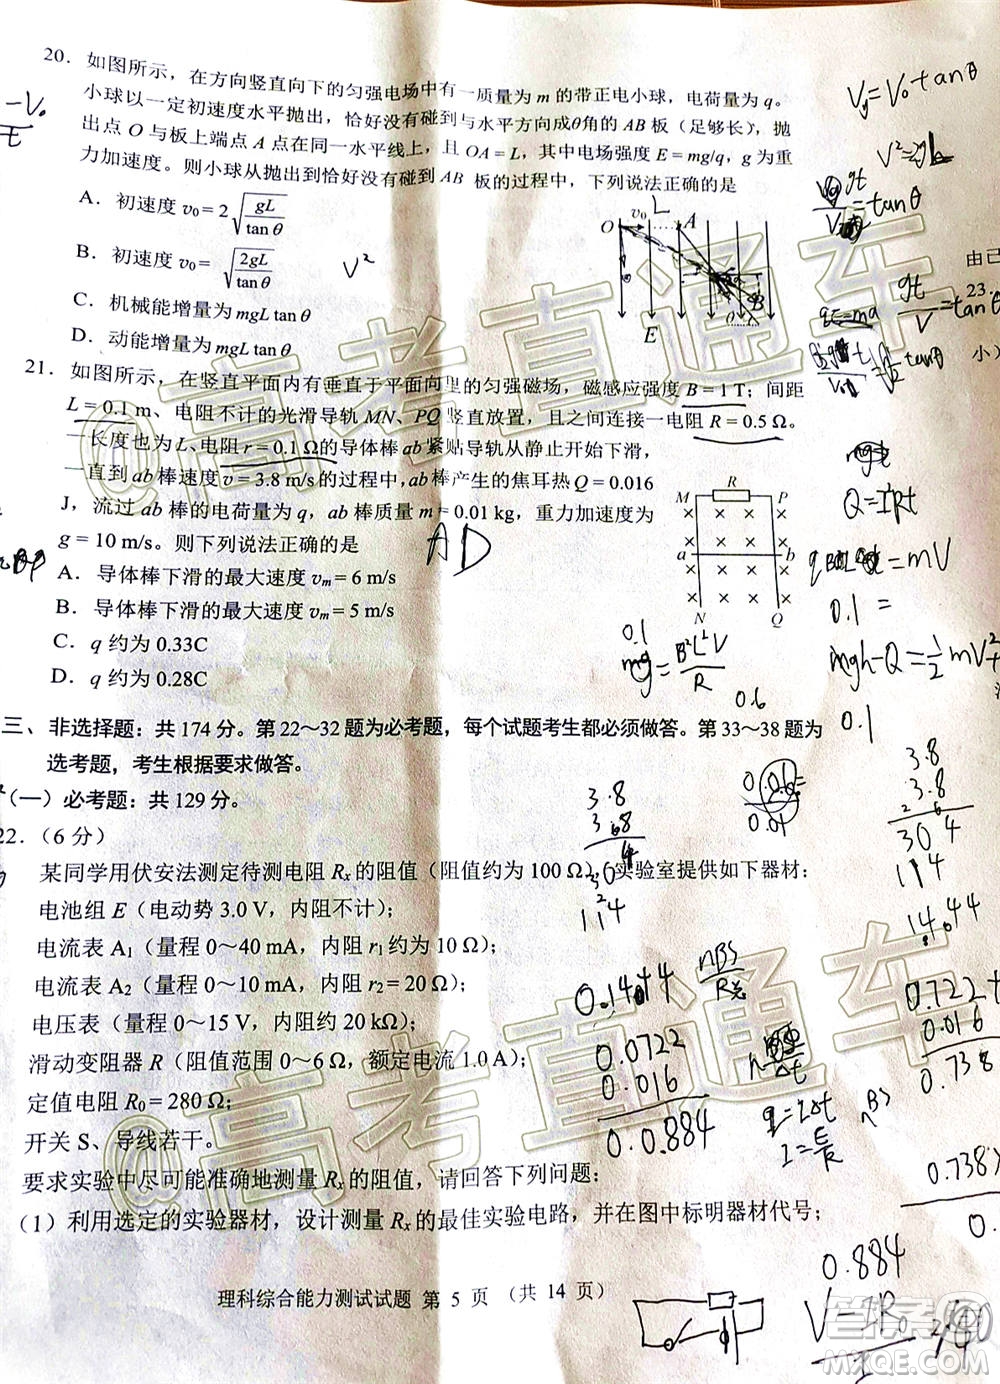 20. 如图所示，在方向竖直向下的匀强电场中有一质量为 m 的带正电小球，电荷量为 q。
小球以一定初速度水平抛出，恰好没有碰到与水平方向成θ角的 AB 板（足够长），抛
出点 O 与板上端点 A 点在同一水平线上，且 OA=L，其中电场强度 E=mg/q，g 为重
力加速度。则小球从抛出到恰好没有碰到 AB 板的过程中，下列说法正确的是
A. 初速度 v₀=2√(gL/tanθ)
B. 初速度 v₀=√(2gL/tanθ)
C. 机械能增量为 mgL tanθ
D. 动能增量为 mgL tanθ
O v₀ L A
E B
21. 如图所示，在竖直平面内有垂直于平面向里的匀强磁场，磁感应强度 B=1 T；间距
L=0.1 m、电阻不计的光滑导轨 MN、PQ 竖直放置，且之间连接一电阻 R=0.5 Ω。
一长度也为 L、电阻 r=0.1 Ω的导体棒 ab 紧贴导轨从静止开始下滑，
一直到 ab 棒速度 v=3.8 m/s 的过程中，ab 棒产生的焦耳热 Q=0.016
J，流过 ab 棒的电荷量为 q，ab 棒质量 m=0.01 kg，重力加速度为
g=10 m/s。则下列说法正确的是
A D
A. 导体棒下滑的最大速度 vm=6 m/s
B. 导体棒下滑的最大速度 vm=5 m/s
C. q 约为 0.33C
D. q 约为 0.28C
M R P
a b
N Q
三、非选择题：共 174 分。第 22～32 题为必考题，每个试题考生都必须做答。第 33～38 题为
选考题，考生根据要求做答。
（一）必考题：共 129 分。
22.（6 分）
某同学用伏安法测定待测电阻 Rx 的阻值（阻值约为 100 Ω），实验室提供如下器材：
电池组 E（电动势 3.0 V，内阻不计）；
电流表 A₁（量程 0～40 mA，内阻 r₁ 约为 10 Ω）；
电流表 A₂（量程 0～10 mA，内阻 r₂=20 Ω）；
电压表（量程 0～15 V，内阻约 20 kΩ）；
滑动变阻器 R（阻值范围 0～6 Ω，额定电流 1.0 A）；
定值电阻 R₀=280 Ω；
开关 S、导线若干。
要求实验中尽可能准确地测量 Rx 的阻值，请回答下列问题：
（1）利用选定的实验器材，设计测量 Rx 的最佳实验电路，并在图中标明器材代号；
理科综合能力测试试题 第 5 页 （共 14 页）
由已
23.
小）
Vy=V₀tanθ
V²
Q=I²Rt
mgh-Q=1/2mV²
0.1
mg=B²L²V/R
0.6
3.8
114
14.44
0.1444
0.0722
0.016
0.0884
0.722
0.016
0.738
0.884
@高考直通车
@高考直通车
答案圈
MXQE.COM